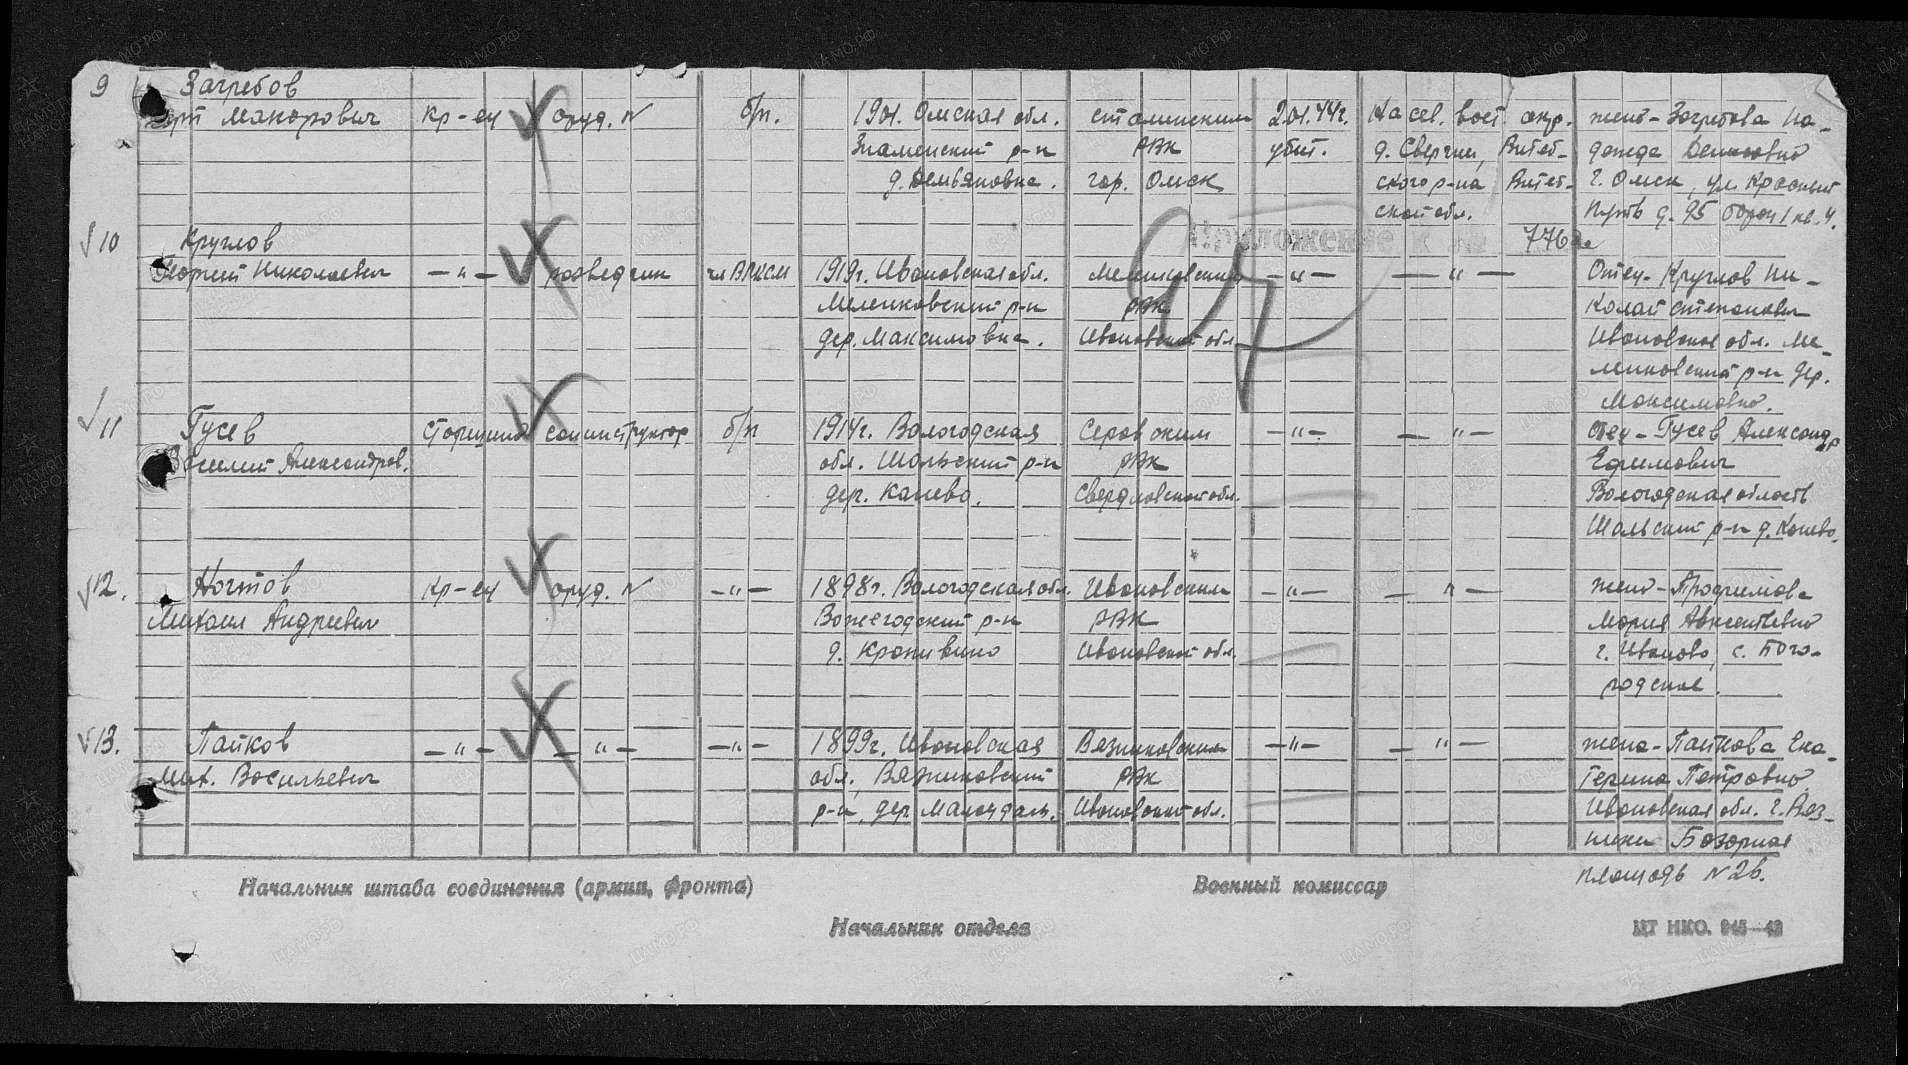 9 Загребов
Макарович кр-ец оруд. № б/п. 1901. Омская обл. Сталинским 2.01.44г. На сев. вост. окр. жена - Загребова На-
Знаменский р-н РВК убит. д. Сверчки, Витеб- дежда Денисовна
д. Демьяновка. гор. Омск ского р-на Витеб- г. Омск, ул. Красный
ской обл. Путь д. 95 кв. 4.
Приложение к № 776
10 Круглов
Георгий Николаевич - " - разведчик чл ВЛКСМ 1919г. Ивановская обл. Меленковским - " - - " - Отец - Круглов Ни-
Меленковский р-н РВК колай Степанович
дер. Максимовка. Ивановской обл. Ивановская обл. Ме-
ленковский р-н дер.
Максимовка.
11 Гусев старшина санинструктор б/п 1914г. Вологодская Серовским - " - - " - Отец - Гусев Александр
Василий Александров. обл. Шольский р-н РВК Ефимович
дер. Конево. Свердловской обл. Вологодская область
Шольский р-н д. Конево.
12. Ногтов кр-ец оруд. № - " - 1898г. Вологодская обл. Ивановским - " - - " - жена - Трофимова
Михаил Андреевич Вожегодский р-н РВК Мария Авксентьевна
д. Крапивино Ивановской обл. г. Иваново, с. Бого-
родское.
13. Пайков - " - - " - - " - 1899г. Ивановская Вязниковским - " - - " - жена - Пайкова Ека-
Мих. Васильевич обл., Вязниковский РВК терина Петровна
р-н, дер. Ивановской обл. Ивановская обл. г. Вяз-
ники Базарная
площадь № 26.
Начальник штаба соединения (армии, фронта) Военный комиссар
Начальник отдела ЦТ НКО. 945—42